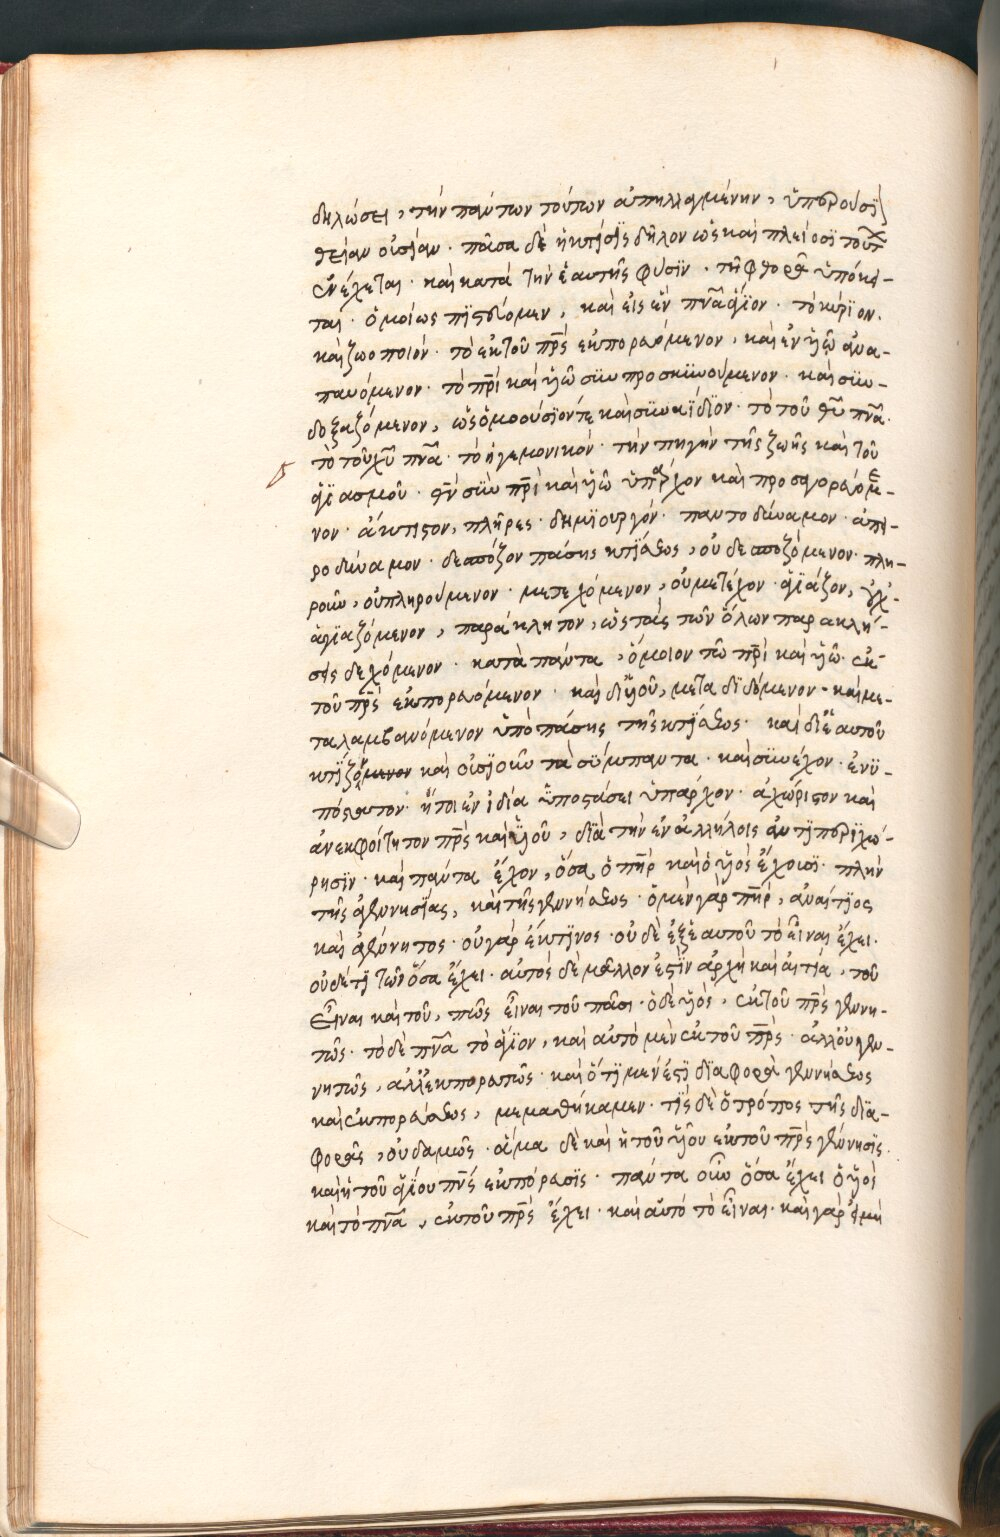 δηλώσει, τὴν πάντων τούτων ἀπηλλαγμένην, ὑπερούσϊ
θείαν οὐσίαν. πᾶσα δὲ ἡ κτίσις δῆλον ὡς καὶ πλείοσϊ τούτ
συνέχεται. καὶ κατὰ τὴν ἑαυτῆς φύσϊν. τῇ φθορᾷ ὑπόκει-
ται. ὁμοίως πϊστεύομεν, καὶ εἰς ἓν πνᾶ ἅγϊον. τὸ κύρϊον.
καὶ ζωοποιόν. τὸ ἐκ τοῦ πρς ἐκπορευόμενον, καὶ ἐν ὑῶ ἀνα-
παυόμενον. τὸ πρὶ καὶ ὑῶ συν προσκυνούμενον. καὶ συν-
δοξαζόμενον, ὡς ὁμοούσϊόν τε καὶ συναΐδϊον. τὸ τοῦ θυ πνᾶ.
τὸ τοῦ χυ πνᾶ. τὸ ἡγεμονικόν. τὴν πηγὴν τῆς ζωῆς καὶ τοῦ
ἁγϊασμοῦ. θν σὺν πρὶ καὶ ὑῶ ὑπάρχον καὶ προσαγορευόμε-
νον. ἄκτιστον, πλῆρες. δημϊουργόν. παντοδύναμον. ἀπει-
ροδύναμον. δεσπόζον πάσης κτϊσεως, οὐ δεσποζόμενον. πλη-
ροῦν, οὐ πληρούμενον. μετεχόμενον, οὐ μετέχον. ἁγϊάζον, οὐχ
ἁγϊαζόμενον, παράκλητον, ὡς τὰς τῶν ὅλων παρακλή-
σεις δεχόμενον. κατὰ πάντα, ὅμοιον τῶ πρὶ καὶ ὑῶ. ἐκ
τοῦ πρς ἐκπορευόμενον. καὶ δι' ὑοῦ, μεταδϊδόμενον. καὶ με-
ταλαμβανόμενον ὑπὸ πάσης τῆς κτϊσεως. καὶ δι' ἑαυτοῦ
κτϊζον καὶ οὐσϊοῦν τὰ σύμπαντα. καὶ συνέχον. ἐνϋ-
πόστατον. ἤτοι ἐν ἰδία ὑποστάσει ὑπάρχον. ἀχώριστον καὶ
ἀνεκφοίτητον πρς καὶ ὑοῦ, δϊὰ τὴν ἐν ἀλλήλοις ἀντϊπερϊχώ-
ρησϊν. καὶ πάντα ἔχον, ὅσα ὁ πὴρ καὶ ὁ ὑὸς ἔχουσϊ. πλὴν
τῆς ἀγεννησϊας, καὶ τῆς γεννήσεως. ὁ μὲν γὰρ πὴρ, ἀναίτϊος
καὶ ἀγέννητος. οὐ γὰρ ἔκ τϊνος. οὐδὲ ἐξ ἑαυτοῦ τὸ εἶναι ἔχει.
οὐδέ τϊ τῶν ὅσα ἔχει. αὐτὸς δὲ μᾶλλον ἐστϊν ἀρχὴ καὶ αἰτία, τοῦ
εἶναι καὶ τοῦ, πῶς εἶναι τοῦ πᾶσι. ὁ δὲ ὑὸς, ἐκ τοῦ πρς γεννη-
τῶς. τὸ δὲ πνᾶ τὸ ἅγϊον, καὶ αὐτὸ μὲν ἐκ τοῦ πρς. ἀλλ' οὐ γεν-
νητῶς, ἀλλ' ἐκπορευτῶς. καὶ ὅτϊ μὲν ἐστϊ δϊαφορὰ γεννήσεως
καὶ ἐκπορεύσεως, μεμαθήκαμεν. τϊς δὲ ὁ τρόπος τῆς δϊα-
φορᾶς, οὐδαμῶς. ἅμα δὲ καὶ ἡ τοῦ ὑοῦ ἐκ τοῦ πρς γέννησϊς.
καὶ ἡ τοῦ ἁγίου πνς ἐκπόρευσϊς. πάντα οὖν ὅσα ἔχει ὁ ὑὸς
καὶ τὸ πνᾶ, ἐκ τοῦ πρς ἔχει. καὶ αὐτὸ τὸ εἶναι. καὶ γὰρ εἰ μὴ